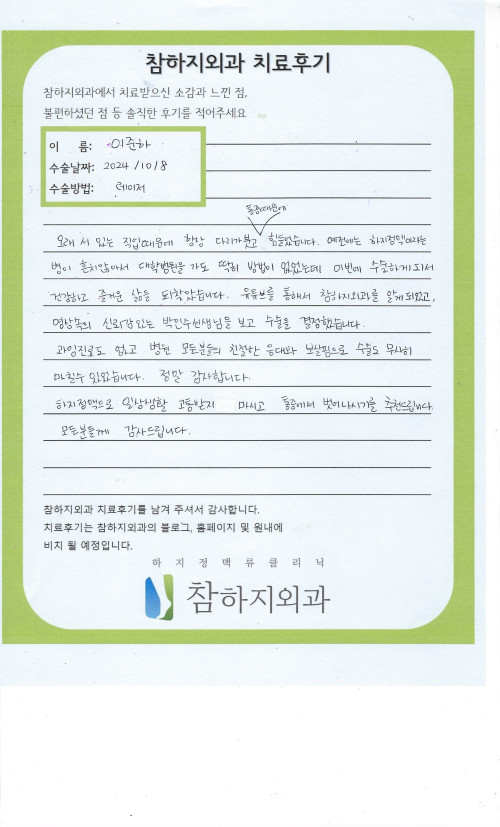 참하지외과 치료후기
참하지외과에서 치료받으신 소감과 느낀 점,
불편하셨던 점 등 솔직한 후기를 적어주세요
이 름: 이준하
수술날짜: 2024/10/8
수술방법: 레이저
통증때문에
오래 서 있는 직업때문에 항상 다리가 붓고 힘들었습니다. 예전에는 하지정맥이라는
병이 흔치않아서 대학병원을 가도 딱히 방법이 없었는데 이번에 수술하게되서
건강하고 즐거운 삶을 되찾았습니다. 유튜브를 통해서 참하지외과를 알게되었고,
영상속의 신뢰감있는 박인수선생님을 보고 수술을 결정했습니다.
과잉진료도 없고 병원 모든분들의 친절한 응대와 보살핌으로 수술도 무사히
마칠수 있었습니다. 정말 감사합니다.
하지정맥으로 일상생활 고통받지 마시고 통증에서 벗어나시기를 추천드립니다.
모든분들께 감사드립니다.
참하지외과 치료후기를 남겨 주셔서 감사합니다.
치료후기는 참하지외과의 블로그, 홈페이지 및 원내에
비치 될 예정입니다.
하지정맥류클리닉
참하지외과